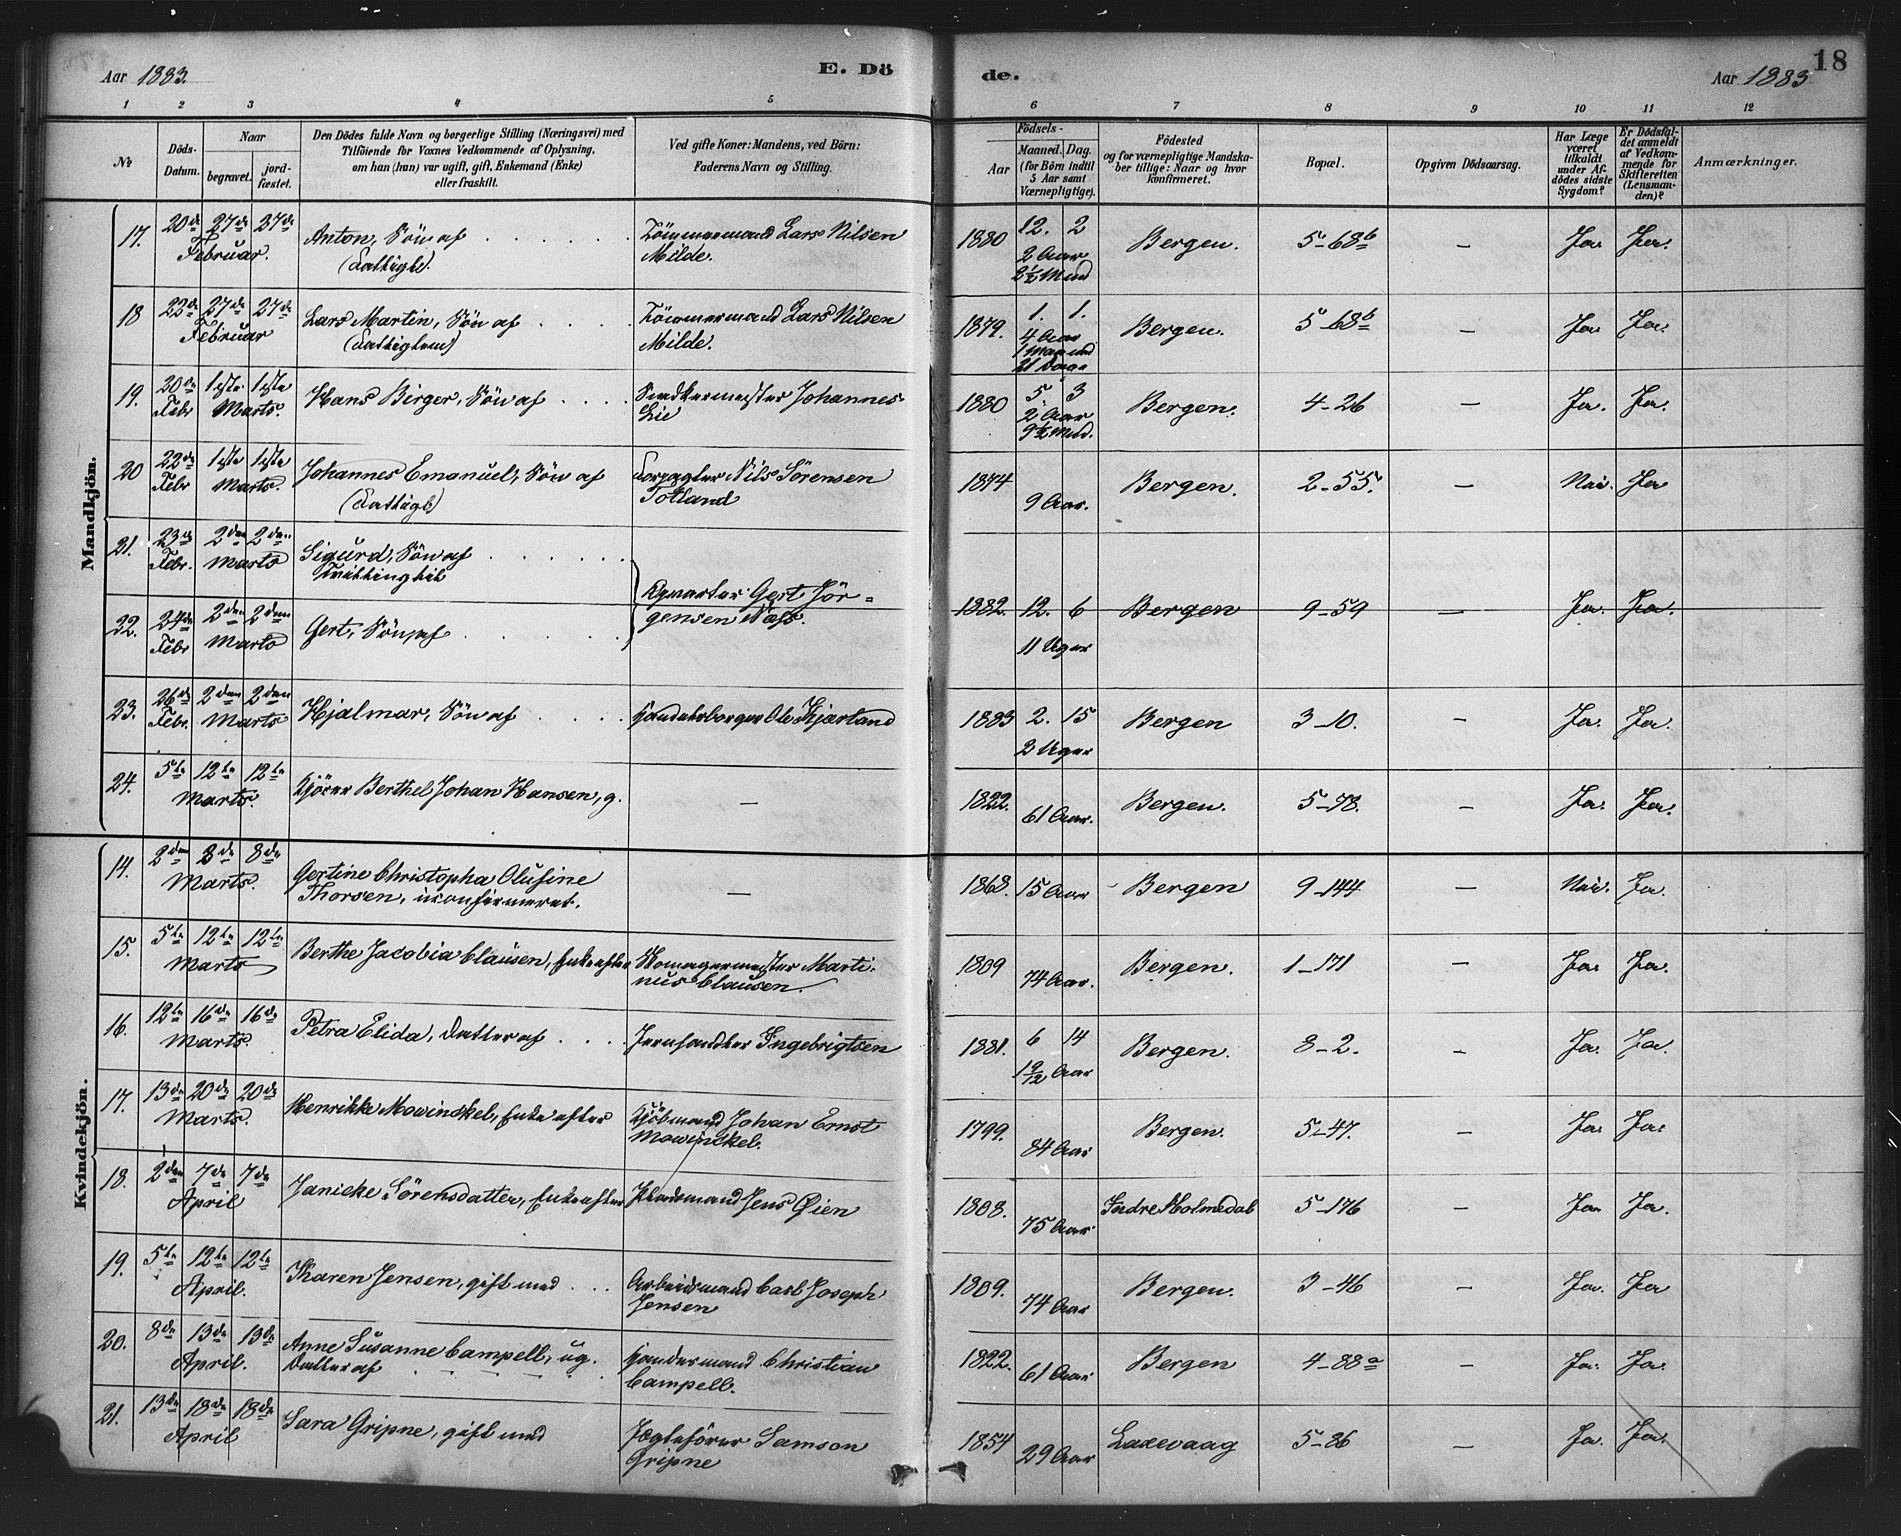 Aar 1883.
E. Dö
de.
Aar 1883
18
1 2 3 4 5 6 7 8 9 10 11 12
No
Döds-Datum.
Naar
begravet.
jord-fæstet.
Den Dödes fulde Navn og borgerlige Stilling (Næringsvei) med
Tilföiende for Voxnes Vedkommende af Oplysning,
om han (hun) var ugift, gift, Enkemand (Enke)
eller fraskilt.
Ved gifte Koner: Mandens, ved Börn:
Faderens Navn og Stilling.
Födsels-
Aar
Maaned. Dag.
(for Börn indtil
5 Aar samt
Værnepligtige).
Födested
og for værnepligtige Mandska-
ber tillige: Naar og hvor
konfirmeret.
Bopæl.
Opgiven Dödsaarsag.
Har Læge
været
tilkaldt
under Af-
dödes sidste
Sygdom?
Er Dödsfal-
det anmeldt
af Vedkom-
mende for
Skifteretten
(Lensman-
den)?
Anmærkninger.
Mandkjön.
17. 20de 27de 27de Anton, Sön af Tömmermand Lars Nilsen 1880 12. 2 Bergen. 5-68b — Ja. Ja.
Februar. Milde. 2 Aar
2½ Mnd
18 22de 27de 27de Lars Martin, Sön af Tömmermand Lars Nilsen 1879. 1. 1. Bergen. 5-68b — Ja Ja.
Februar Milde. 4 Aar
1 Maaned
21 Dage
19. 20de 1ste 1ste Hans Birger, Sön af Snedkermester Johannes 1880 5. 3 Bergen. 4-26 — Ja. Ja.
Febr Marts. Lie 2 Aar
9½ Mnd.
20 22de 1ste 1ste Johannes Emanuel, Sön af Nils Sörensen 1874 Bergen. 2-55. — Nei. Ja
Febr Marts. Totland 9 Aar.
21. 23de 2den 2den Sigurd, Sön af
Febr. Marts Tvillinglid
Gert Jör-
22. 24de 2den 2den Gert, Sön af gensen Næss. 1882. 12. 6 Bergen 9-59 — Ja. Ja.
Febr Marts 11 Uger
23. 26de 2den 2den Hjalmar, Sön af Handelsborger Ole Kjartand 1883 2. 15 Bergen 3-10. — Ja. Ja.
Febr. Marts 2 Uger
24. 5te 12te 12te Kjörer Berthel Johan Hansen, g. — 1822. Bergen. 5-78. — Ja. Ja.
Marts 61 Aar.
Kvindekjön.
14. 2den 8de 8de Gertine Christopha Olufine — 1868. 15 Aar Bergen 9-144 — Nei. Ja.
Marts. Thorsen, ukonfirmeret.
15. 5te 12te 12te Berthe Jacobia Clausen, Enke efter Skomagermester Marti- 1809 Bergen. 1-171 — Ja. Ja.
Marts nus Clausen. 74 Aar.
16. 12te 16de 16de Petra Elida, Datter af Jernhandler Ingebrigtsen 1881. 6 14 Bergen. 8-2. — Ja. Ja.
Marts. 1 9/12 Aar
17. 13de 20de 20de Henrikke Mowinckel, Enke efter Kjöbmand Johan Ernst 1799. Bergen. 5-47. — Ja. Ja.
Marts. Mowinckel. 84 Aar
18. 2den 7de 7de Janicke Sörensdatter, Enke efter Jens Øien 1808. Indre Holmedal 5-176 — Ja Ja.
April 75 Aar
19. 5te 12te 12te Karen Jensen, gift med Arbeidsmand Carl Joseph 1809. Bergen. 3-46 — Ja. Ja
April. Jensen 74 Aar
20. 8de 13de 13de Anne Susanne Campell, ug. Handelsmand Christian 1822. Bergen 4-88a — Ja. Ja.
April. Datter af Campell. 61 Aar
21. 13de 18de 18de Sara Gripne, gift med Jægtefører Samson 1854 Laxevaag 5-86 — Ja. Ja.
April Gripne 29 Aar